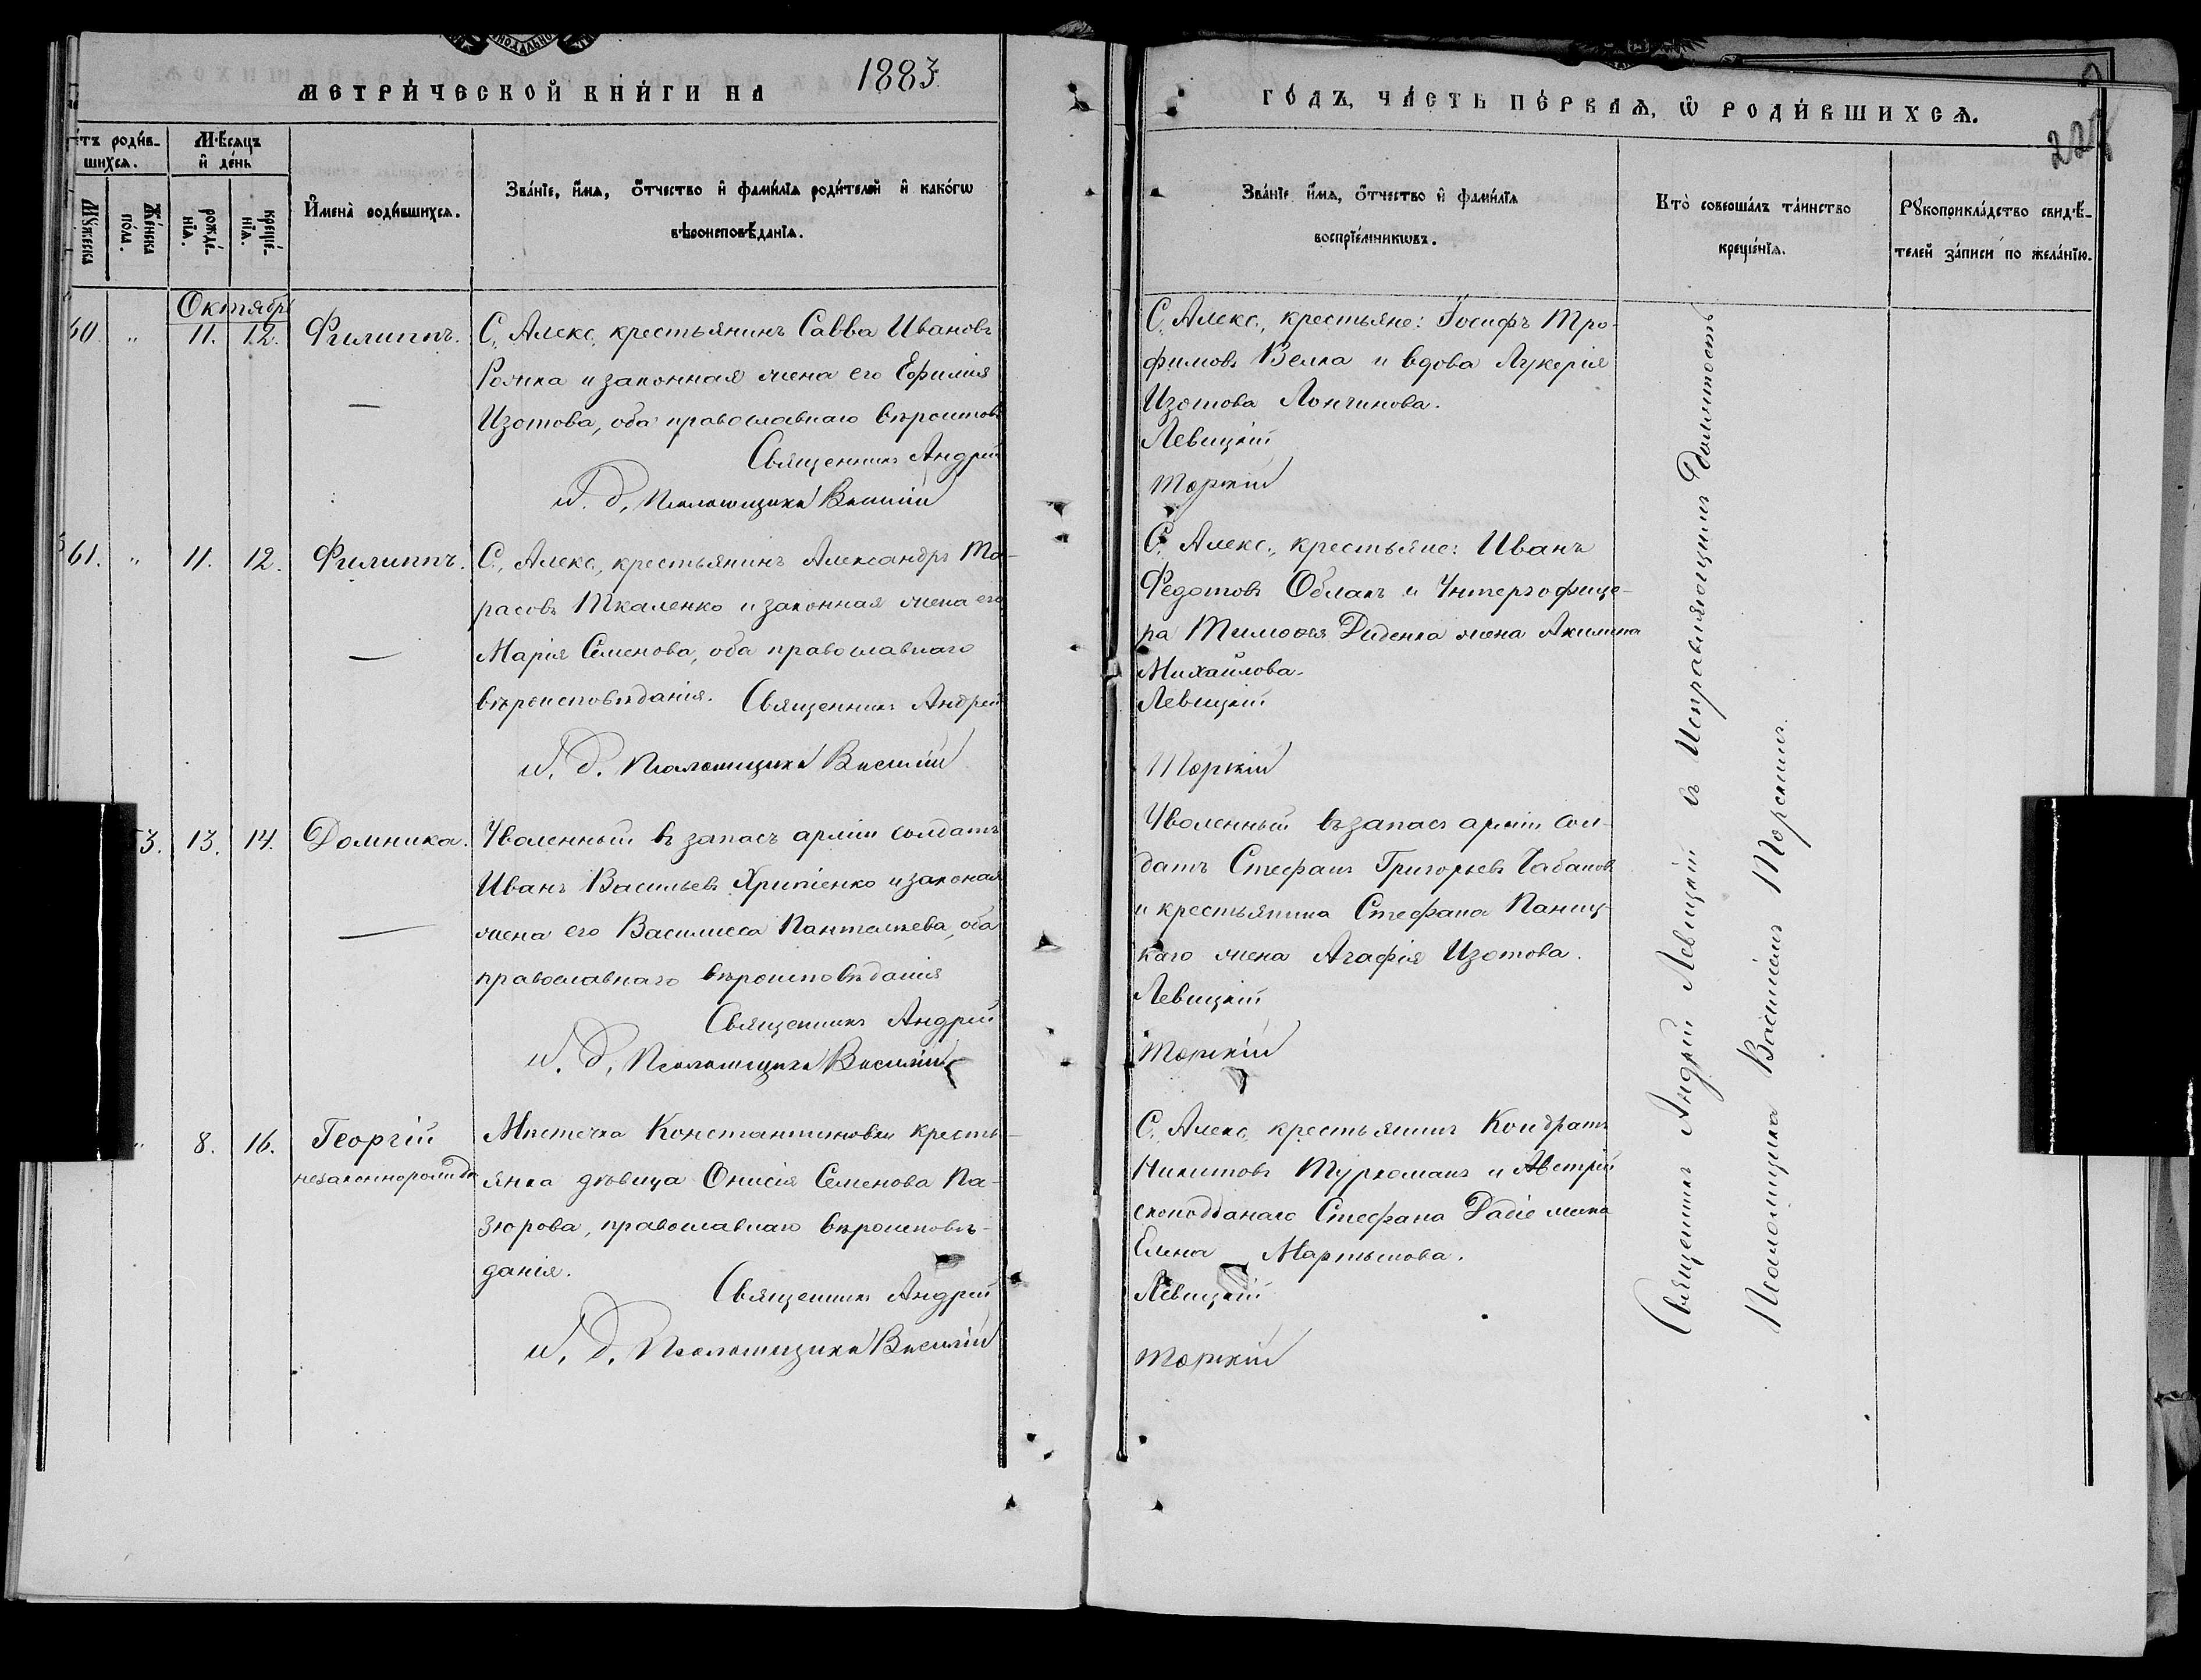 МЕТРИ́ЧЕСКОЙ КНИ́ГИ НА 1883
ГО́ДЪ, ЧА́СТЬ ПЕ́РВАѦ, Ѡ РОДИ́ВШИХСѦ.
224
е́тъ роди́в-
шихсѧ.
Мꙋжеска
Же́нска
по́ла.
Мѣ́сѧцъ
и҆ де́нь
рожде́-
нїѧ.
креще́-
нїѧ.
И҆мена̀ роди́вшихсѧ.
Зва́нїе, и҆́мѧ, ѻ҆́тчество и҆ фами́лїѧ роди́телей и҆ како́гѡ
вѣроисповѣ́данїѧ.
Зва́нїе и҆́мѧ, ѻ҆́тчество и҆ фами́лїѧ
воспрїе́мникѡвъ.
Кто̀ соверша́лъ та́инство
креще́нїѧ.
Рꙋкоприкла́дство свидѣ́-
телей за́писи по жела́нїю.
Октябрь
60. " 11. 12. Филиппъ.
С. Алекс. крестьянинъ Савва Ивановъ
Рожка и законная жена его Ефимія
Изотова, оба православнаго вѣроиспов
Священникъ Андрей
И. д. Псаломщика Василій
С. Алекс., крестьяне: Іосифъ Тро-
фимовъ Велка и вдова Лукерія
Изотова Лончинова.
Левицкій
Торскій
61. " 11. 12. Филиппъ.
С. Алекс., крестьянинъ Александръ Та-
расовъ Ткаленко и законная жена его
Марія Семенова, оба православнаго
вѣроисповѣданія. Священникъ Андрей
И. д. Псаломщика Василій
С. Алекс., крестьяне: Иванъ
Федотовъ Облакъ и Унтерофице-
ра Тимофея Диденка жена Акилина
Михайлова.
Левицкій
Торскій
3. 13. 14. Домника.
Уволенный въ запасъ арміи солдатъ
Иванъ Васильевъ Хрипіенко и законая
жена его Василисса Пантелѣева, оба
православнаго вѣроисповѣданія
Священникъ Андрей
И. д. Псаломщика Василій
Уволенный въ запасъ арміи сол-
датъ Стефанъ Григорьевъ Чабановъ
и крестьянина Стефана Паниц-
каго жена Агафія Изотова.
Левицкій
Торскій
" 8. 16. Георгій
незаконнорожд
Мѣстечка Константиновки кресть-
янка дѣвица Онисія Семенова Па-
зюрова, православнаго вѣроисповѣ-
данія.
Священникъ Андрей
И. д. Псаломщика Василій
С. Алекс. крестьянинъ Кондратъ
Никитовъ Туркоманъ и Австрій
скоподданаго Стефана Дабіе жена
Елена Мартынова.
Левицкій
Торскій
Священникъ Андрей Левицкій съ Исправляющимъ Должность
Псаломщика Василіемъ Торскимъ.